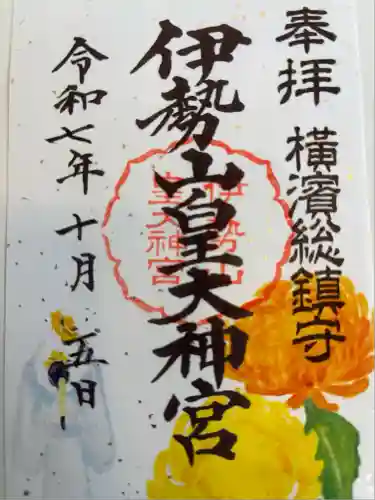 奉拝
横濱総鎮守
伊勢山皇大神宮
伊勢山
皇大神宮
令和七年十月二五日